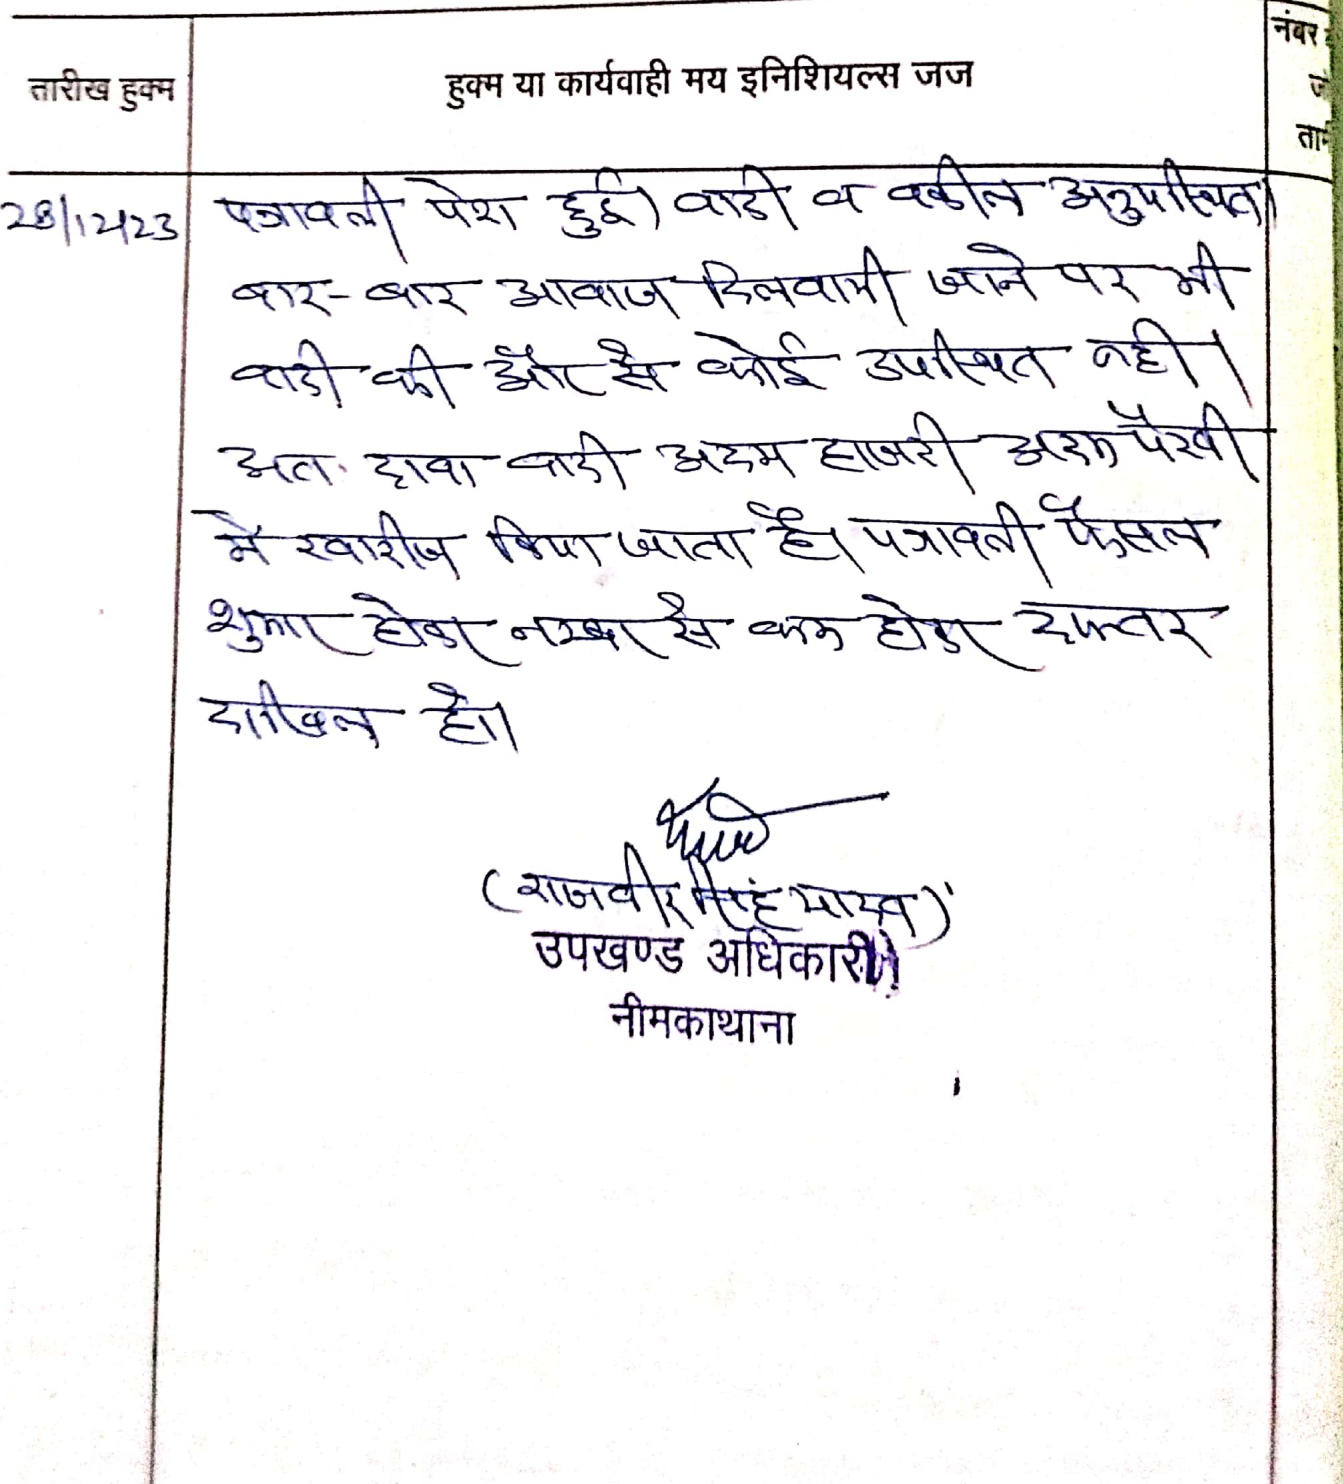 तारीख हुक्म
हुक्म या कार्यवाही मय इनिशियल्स जज
नंबर
28/12/23
पत्रावली पेश हुई। वादी व वकील अनुपस्थित।
बार-बार आवाज दिलवायी जाने पर भी
वादी की और से कोई उपस्थित नही।
अतः दावा वादी अदम हाजरी अदम पैरवी
मे खारीज किया जाता है। पत्रावली फैसल
शुमार होकर नम्बर से कम होकर दफ्तर
दाखिल हो।
(राजवीर सिंह यादव)
उपखण्ड अधिकारी
नीमकाथाना